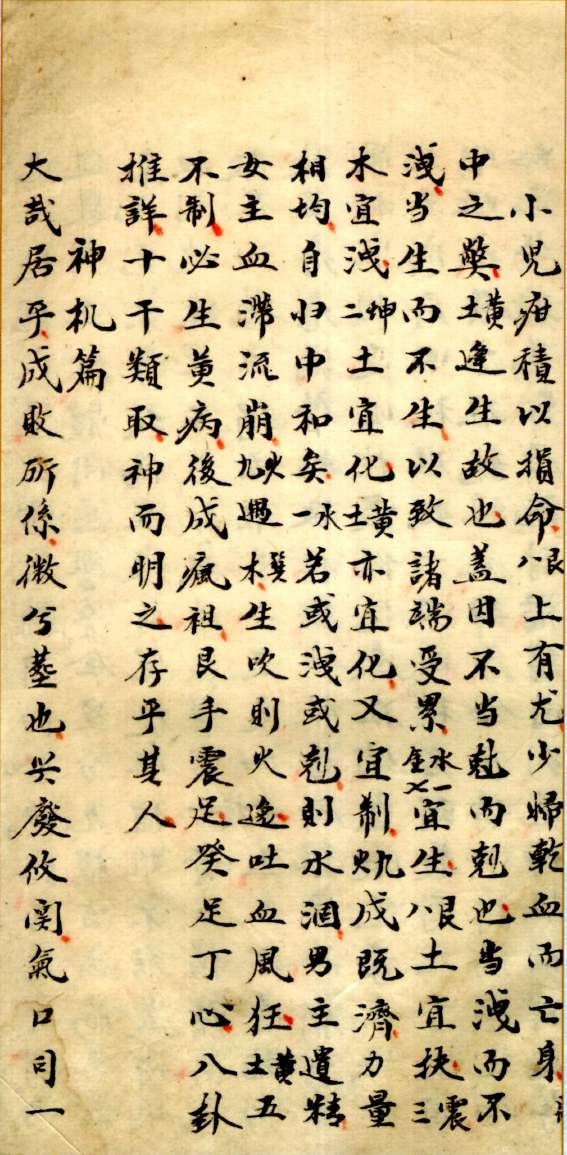 小兒疳積以損命艮八上有尤少婦乾血而亡身
中之獘黃土逢生故也蓋因不当尅而剋也当洩而不
洩当生而不生以致諸端受累水一金宜生艮八土宜扶震三
木宜洩坤二土宜化黃土亦宜化又宜制九火成既濟力量
相均自归中和矣水一若或洩或剋則水涸男主遺精
女主血滯流崩火九遇巽木生吹則火逸吐血風狂黃土五
不制必生黄病後成瘋祖艮手震足癸足丁心八卦
推詳十干類取神而明之存乎其人
神机篇
大哉居乎成敗所係微兮塟也兴廢攸関氣口司一